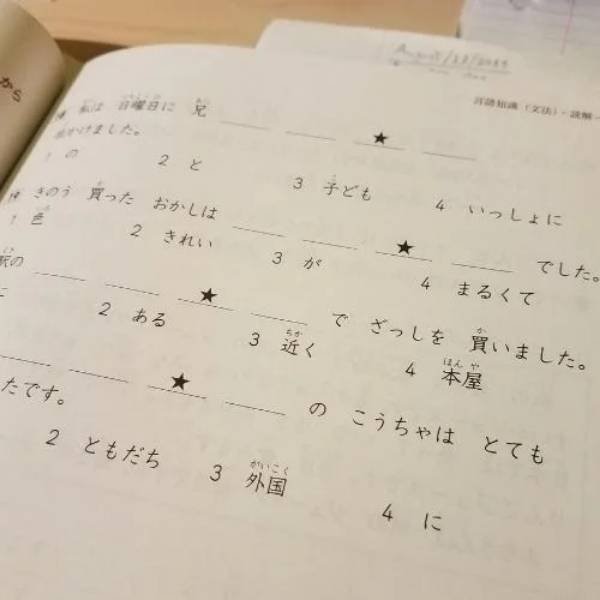 から
August/22/20
言語知識（文法）・読解
私は 日曜日に 兄 ＿＿ ＿＿ ★ ＿＿
出かけました。
1 の 2 と 3 子ども 4 いっしょに
きのう 買った おかしは ＿＿ ＿＿ ★ ＿＿ でした。
1 色 2 きれい 3 が 4 まるくて
駅の ＿＿ ＿＿ ★ ＿＿ で ざっしを 買いました。
に 2 ある 3 近く 4 本屋
＿＿ ＿＿ ★ ＿＿ の こうちゃは とても
たです。
2 ともだち 3 外国 4 に